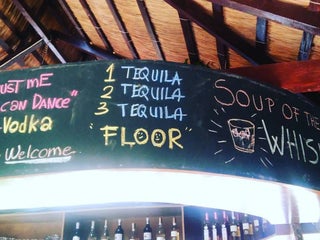 UST ME
CAN DANCE"
Vodka
Welcome
1 TEQUILA
2 TEQUILA
3 TEQUILA
"FLOOR"
SOUP OF THE
WHIS